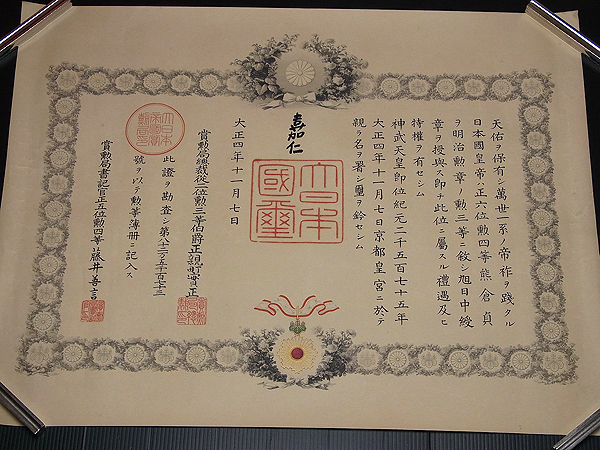 天佑ヲ保有シ萬世一系ノ帝祚ヲ踐タル
日本國皇帝ハ正六位勲四等熊倉貞
ヲ明治勲章ノ勲三等ニ敍シ旭日中綬
章ヲ授與ス即チ此位ニ屬スル禮遇及ヒ
特權ヲ有セシム
神武天皇即位紀元二千五百七十五年
大正四年十一月七日京都皇宮ニ於テ
親ラ名ヲ署シ璽ヲ鈐セシム
嘉仁
大日本國璽
大正四年十一月七日
賞勲局總裁從二位勲二等伯爵正親町實正
此證ヲ勘査シ第八十三万五千百七十三
號ヲ以テ勲等簿冊ニ記入ス
賞勲局書記官正五位勲四等藤井善言